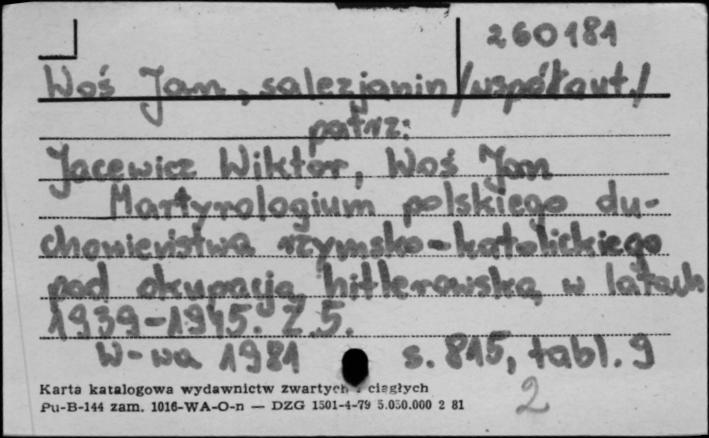 260181
Woś Jan, salezjanin /współaut./
patrz:
Jacewicz Wiktor, Woś Jan
Martyrologium polskiego du-
chowieństwa rzymsko-katolickiego
pod okupacją hitlerowską w latach
1939-1945. Z.5.
W-wa 1981 s. 815, tabl. 9
Karta katalogowa wydawnictw zwartych i ciągłych
Pu-B-144 zam. 1016-WA-O-n — DZG 1501-4-79 5.050.000 2 81
2